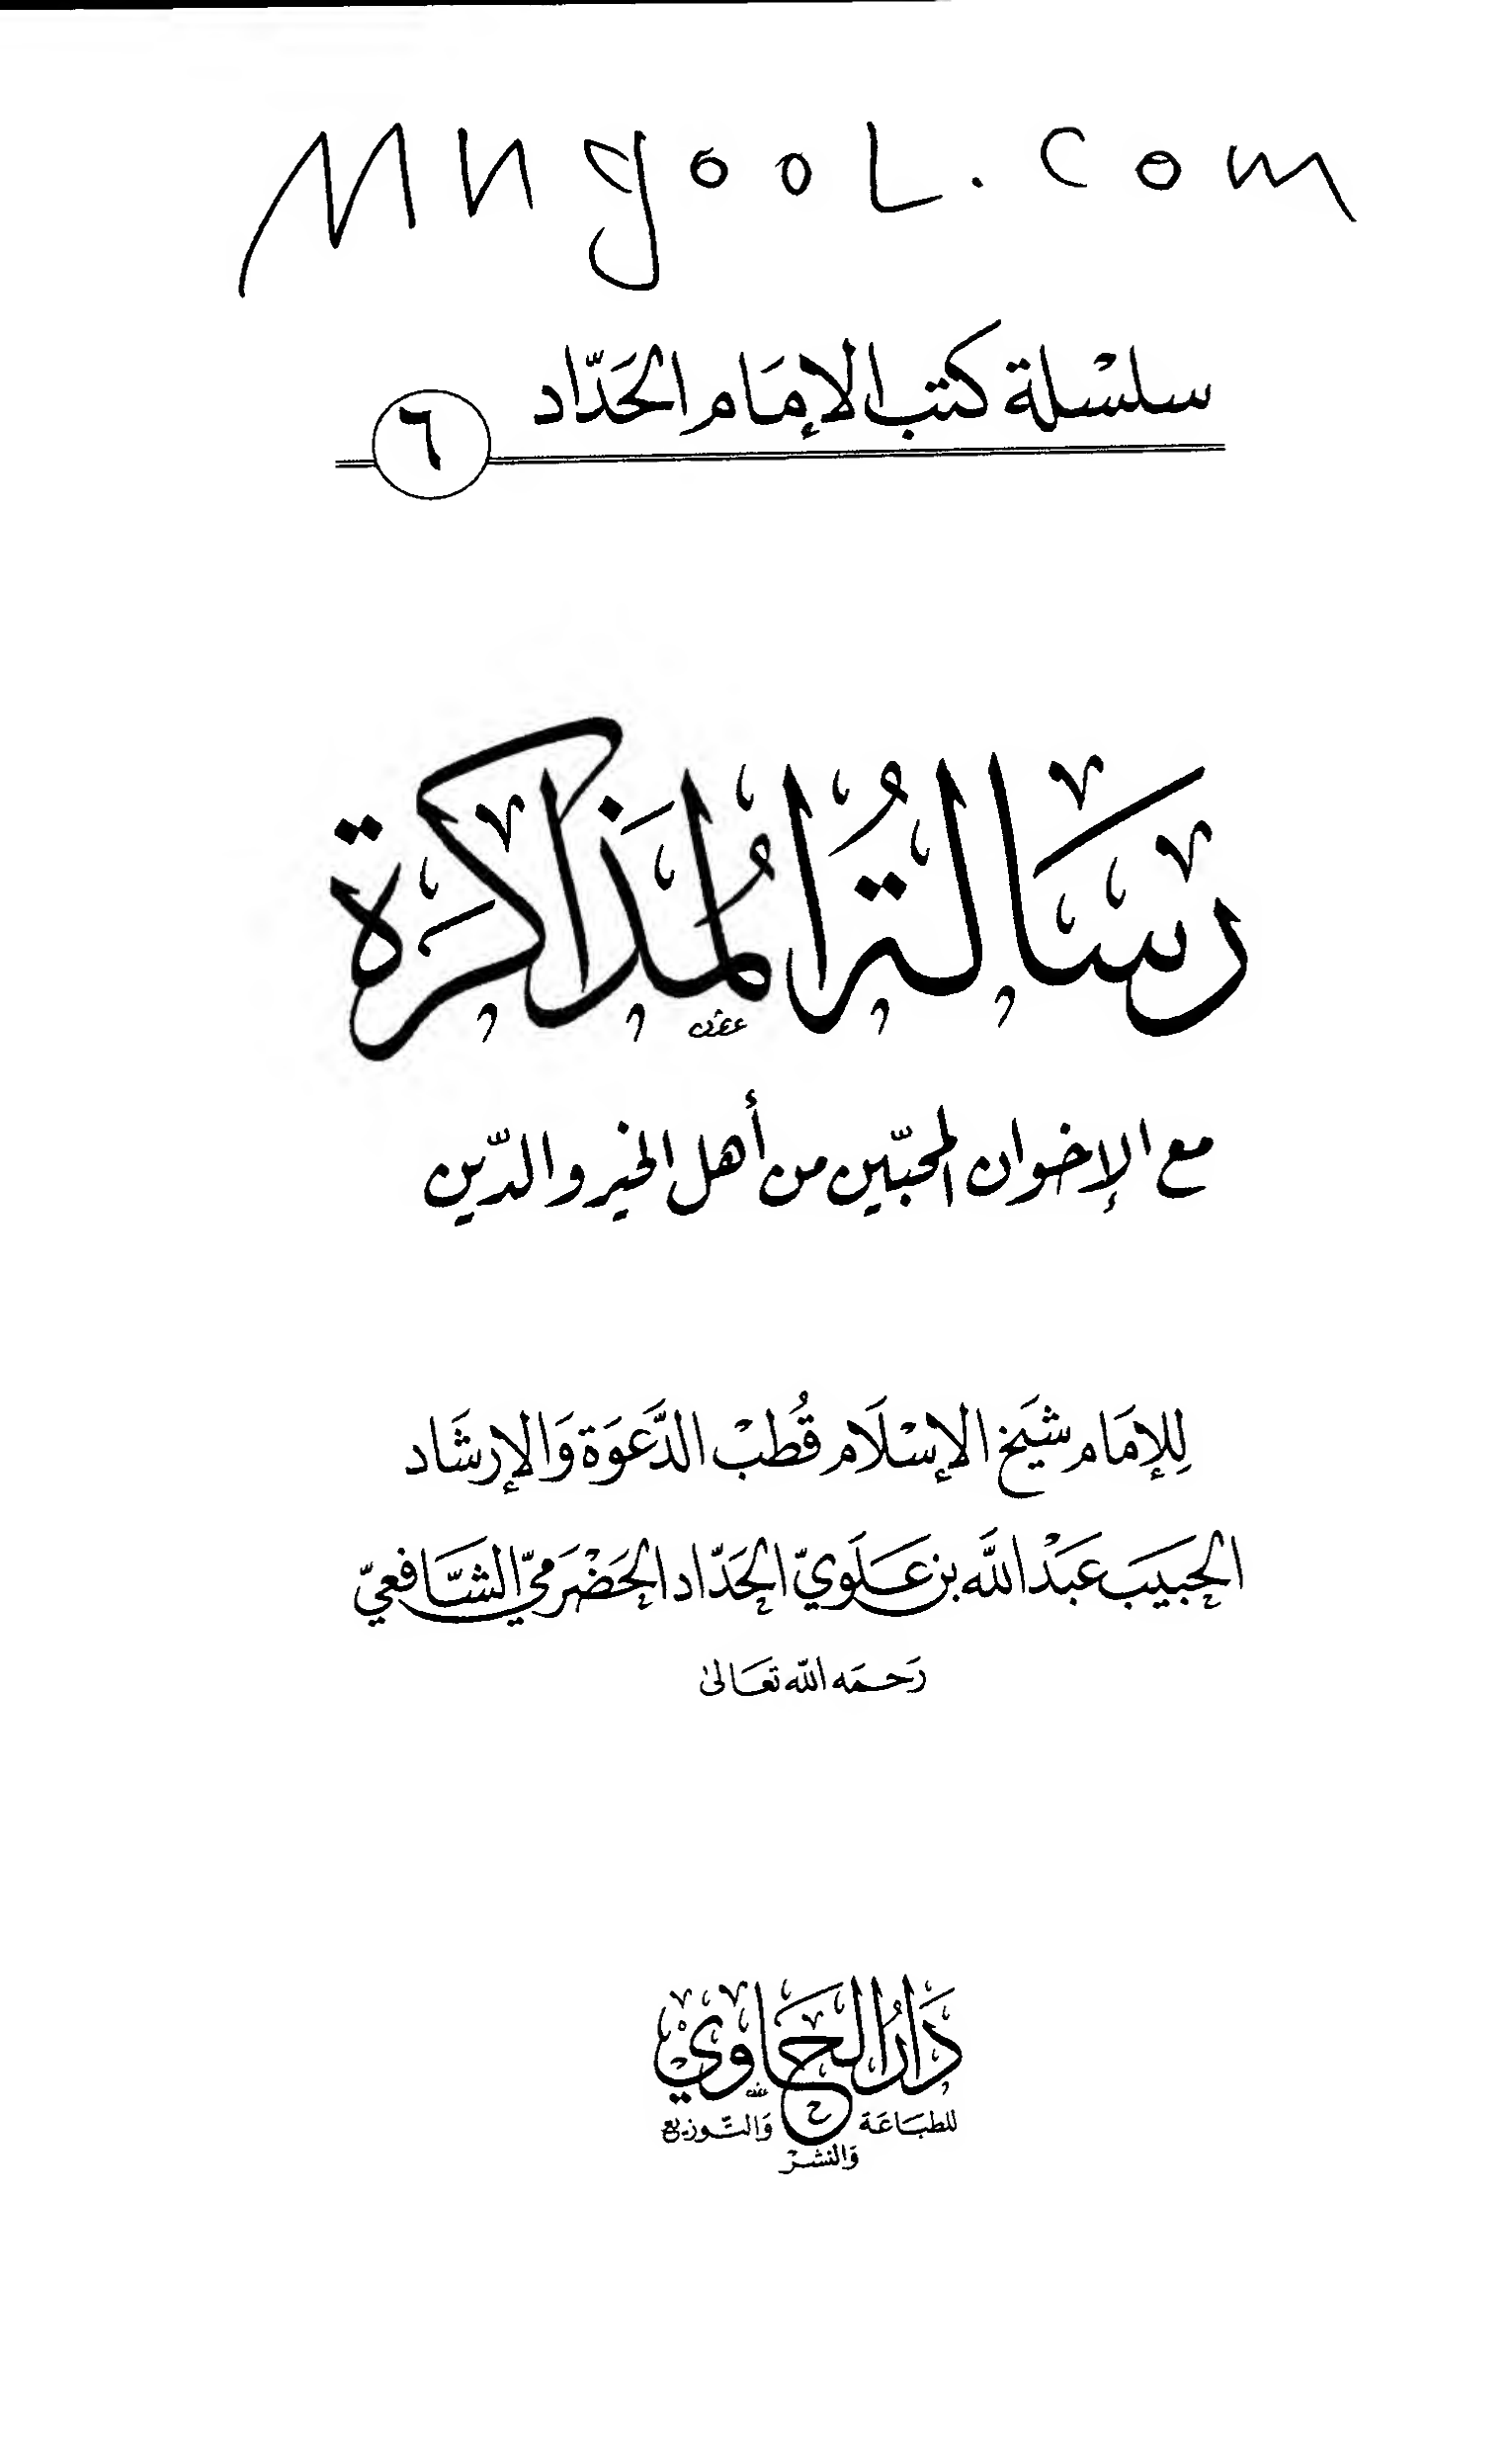 Mngool.com
سلسلة كتب الإمام الحداد
٦
رسالة المذاكرة
مع الإخوان المحبّين من أهل الخير والدّين
لِلإمَام شَيخ الإسْلَام قُطبْ الدَّعوَة وَالإرشَاد
الحَبيَب عَبْد اللَّه بن عَلَويّ الحَدّاد الحَضْرَميّ الشَّافعيّ
رَحمَه الله تعَالىٰ
دَارُ الحَاوِيْ
للطبَاعَة وَالنشرْ وَالتَّوزيع